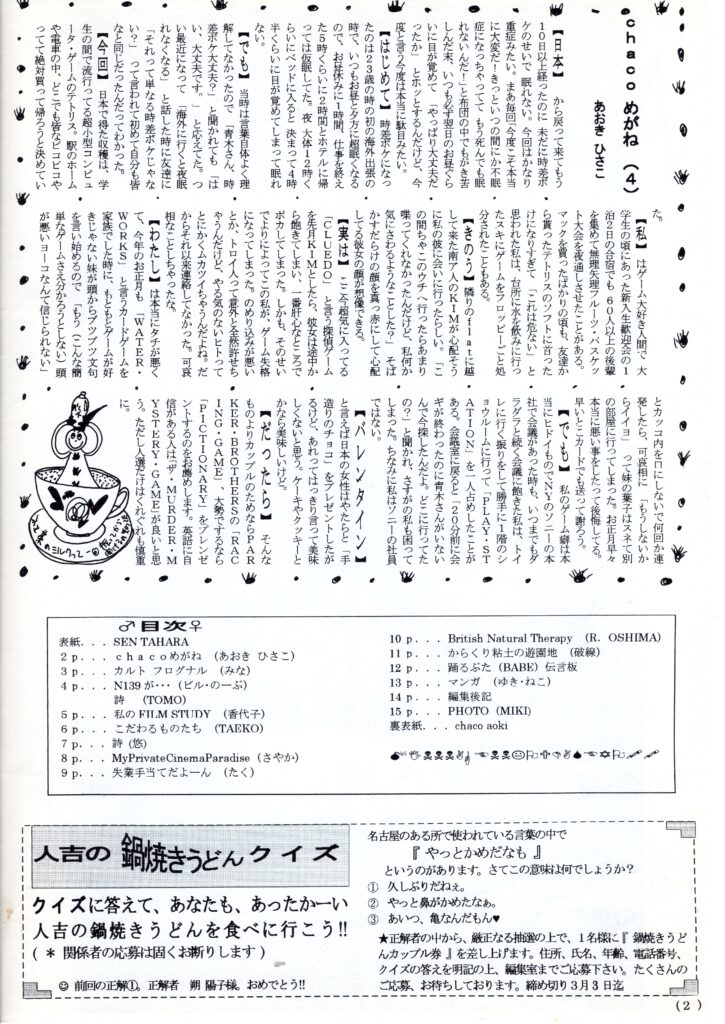 chacoめがね（4）
あおき ひさこ
【日本】 から戻って来てもう
10日以上経ったのに 未だに時差ボ
ケのせいで 眠れない。今回はかなり
重症みたい。まあ毎回「今度こそ本当
に大変だ！きっといつの間にか不眠
症になっちゃってて もう死んでも眠
れないんだ！」と布団の中でもがき苦
しんだ末、いつも必ず翌日のお昼ぐら
いに目が覚めて 「やっぱり大丈夫だ
ったか」とホッとするんだけど、今
度と言う今度は本当に駄目みたい。
【はじめて】 時差ボケになっ
たのは23歳の時の初の海外出張の
時で、いつもお昼と夕方に超眠くなる
ので、お昼休みに1時間、仕事を終え
た5時くらいに2時間とホテルに帰
っては仮眠してた。夜 大体12時く
らいにベッドに入ると 決まって4時
半くらいに目が覚めてしまって眠れ
ない。
【でも】 当時は言葉自体よく理
解してなかったので「青木さん、時
差ボケ大丈夫？」と聞かれても「は
い、大丈夫です。」と応えてた。つ
い最近になって 「海外に行くと夜眠
れなくなる」 と話した時に友達に
「それって単なる時差ボケじゃな
い？」 って言われて初めて自分も皆
なと同じだったんだってわかった。
【今回】 日本で得た収穫は、学
生の間で流行ってる超小型コンピュ
ータ・ゲームのテトリス。駅のホーム
や電車の中、どこでも皆なピコピコや
ってて絶対買って帰ろうと決めてい
た。
【私】 はゲーム大好き人間で 大
学生の頃にあった新入生歓迎会の1
泊2日の合宿でも 60人以上の後輩
を集めて無理矢理フルーツ・バスケッ
ト大会を夜通しさせたことがある。
マックを買ったばかりの頃も、友達か
ら貰ったテトリスのソフトに首った
けになりすぎて 「これは危ない」 と
思われた私は、台所に水を飲みに行っ
たスキにゲームをフロッピーごと処
分されたこともある。
【きのう】 隣りのflatに越
して来た南ア人のKIMが心配そう
に私の彼に会いに行ったらしい。「こ
の間ちゃこのウチへ行ったらあまり
喋ってくれなかったんだけど、私何か
気にさわるようなことしたら」 そば
かすだらけの顔を真っ赤にして心配
してる彼女の顔が想像できる。
【実は】 ここ今超気に入ってる
「CLUEDO」 と言う探偵ゲーム
を先月KIMとしたら、彼女は途中か
ら飽きてしまい、一番肝心なところで
ボカしてしまった。しかも、そのせい
でよりによってこの私が、ゲーム失格
になってしまった。のめり込みが悪い
とか、トロイ人って意外と全然許せち
ゃうんだけど、やる気のないヒトって
とにかくムカツイちゃうんだよね。だ
からそれ以来連絡してなかった。可哀
相なことしちゃったな。
【わたし】 は本当にタチが悪く
て、今年のお正月も 「WATER・
WORKS」 と言うカードゲームを
家族でした時に、もともとゲームが好
きじゃない妹が頭からブツブツ文句
を言い始めるので 「もう（こんな簡
単なゲームさえ分かろうとしない）頭
が悪いヨーコなんて信じられない」
とカッコ内を口にしないで何回か連
発したら、可哀相に 「もうしないか
らイイヨ」 って妹の葉子はスネて別
の部屋に行ってしまった。お正月早々
本当に悪い事をしたって後悔してる。
早いとこカードでも送って謝ろう。
【でも】 私のゲーム癖は本
当にヒドイものでNYのソニーの本
社で会議があった時も、いつまでもダ
ラダラと続く会議に飽きた私は、トイ
レに行く振りをして勝手に1階のシ
ョウルームに行って「PLAY・ST
ATION」 を一人占めしたことが
ある。会議室に戻ると 「20分前に会
ギが終わったのに青木さんがいない
んで今探したんだよ。どこに行ってた
の？」 と聞かれ、さすがの私も困って
しまった。ちなみに私はソニーの社員
ではない。
【バレンタイン】
と言えば日本の女性はやたらと 「手
造りのチョコ」をプレゼントしたが
るけど、あれってはっきり言って美味
しくないと思う。ケーキやクッキーと
かなら美味しいけど。
【だったら】 そんな
ものよりカップルのためならPAR
KER・BROTHERSの「RAC
ING・GAME」、大勢でするなら
「PICTIONARY」をプレンゼ
ントするのをお薦めします。英語に自
信がある人は「ザ・MURDER・M
YSTERY・GAME」が良いと思
う。ただし人選だけはくれぐれも慎重
に。
♂目次♀
表紙．．．SEN TAHARA
2 p．．．ｃｈａｃｏめがね （あおき ひさこ）
3 p．．．カルト フログナル （みな）
4 p．．．N139 が・・（ビル・のーぶ）
詩 （TOMO）
5 p．．．私の FILM STUDY （香代子）
6 p．．．こだわるものたち （TAEKO）
7 p．．．詩 (悠)
8 p．．．MyPrivateCinemaParadise（さやか）
9 p．．．失業手当てだよーん （たく）
10 p．．．British Natural Therapy （R. OSHIMA）
11 p．．．からくり粘土の遊園地 （破線）
12 p．．．踊るぶた （BABE）伝言板
13 p．．．マンガ （ゆき・ねこ）
14 p．．．編集後記
15 p．．．PHOTO（MIKI）
裏表紙．．．chaco aoki
人吉の 鍋焼きうどん クイズ
クイズに答えて、あなたも、あったかーい
人吉の鍋焼きうどんを食べに行こう!!
( ＊ 関係者の応募は固くお断りします )
☺ 前回の正解①。正解者 朔 陽子様。おめでとう!!
名古屋のある所で使われている言葉の中で
『 やっとかめだなも 』
というのがあります。さてこの意味は何でしょうか？
① 久しぶりだねぇ。
② やっと鼻がかめたなぁ。
③ あいつ、亀なんだもん♥
★正解者の中から、厳正なる抽選の上で、1名様に『 鍋焼きうど
んカップル券 』を差し上げます。住所、氏名、年齢、電話番号、
クイズの答えを明記の上、編集室までご応募下さい。たくさんの
ご応募、お待ちしております。締め切り3月3日迄
( 2 )